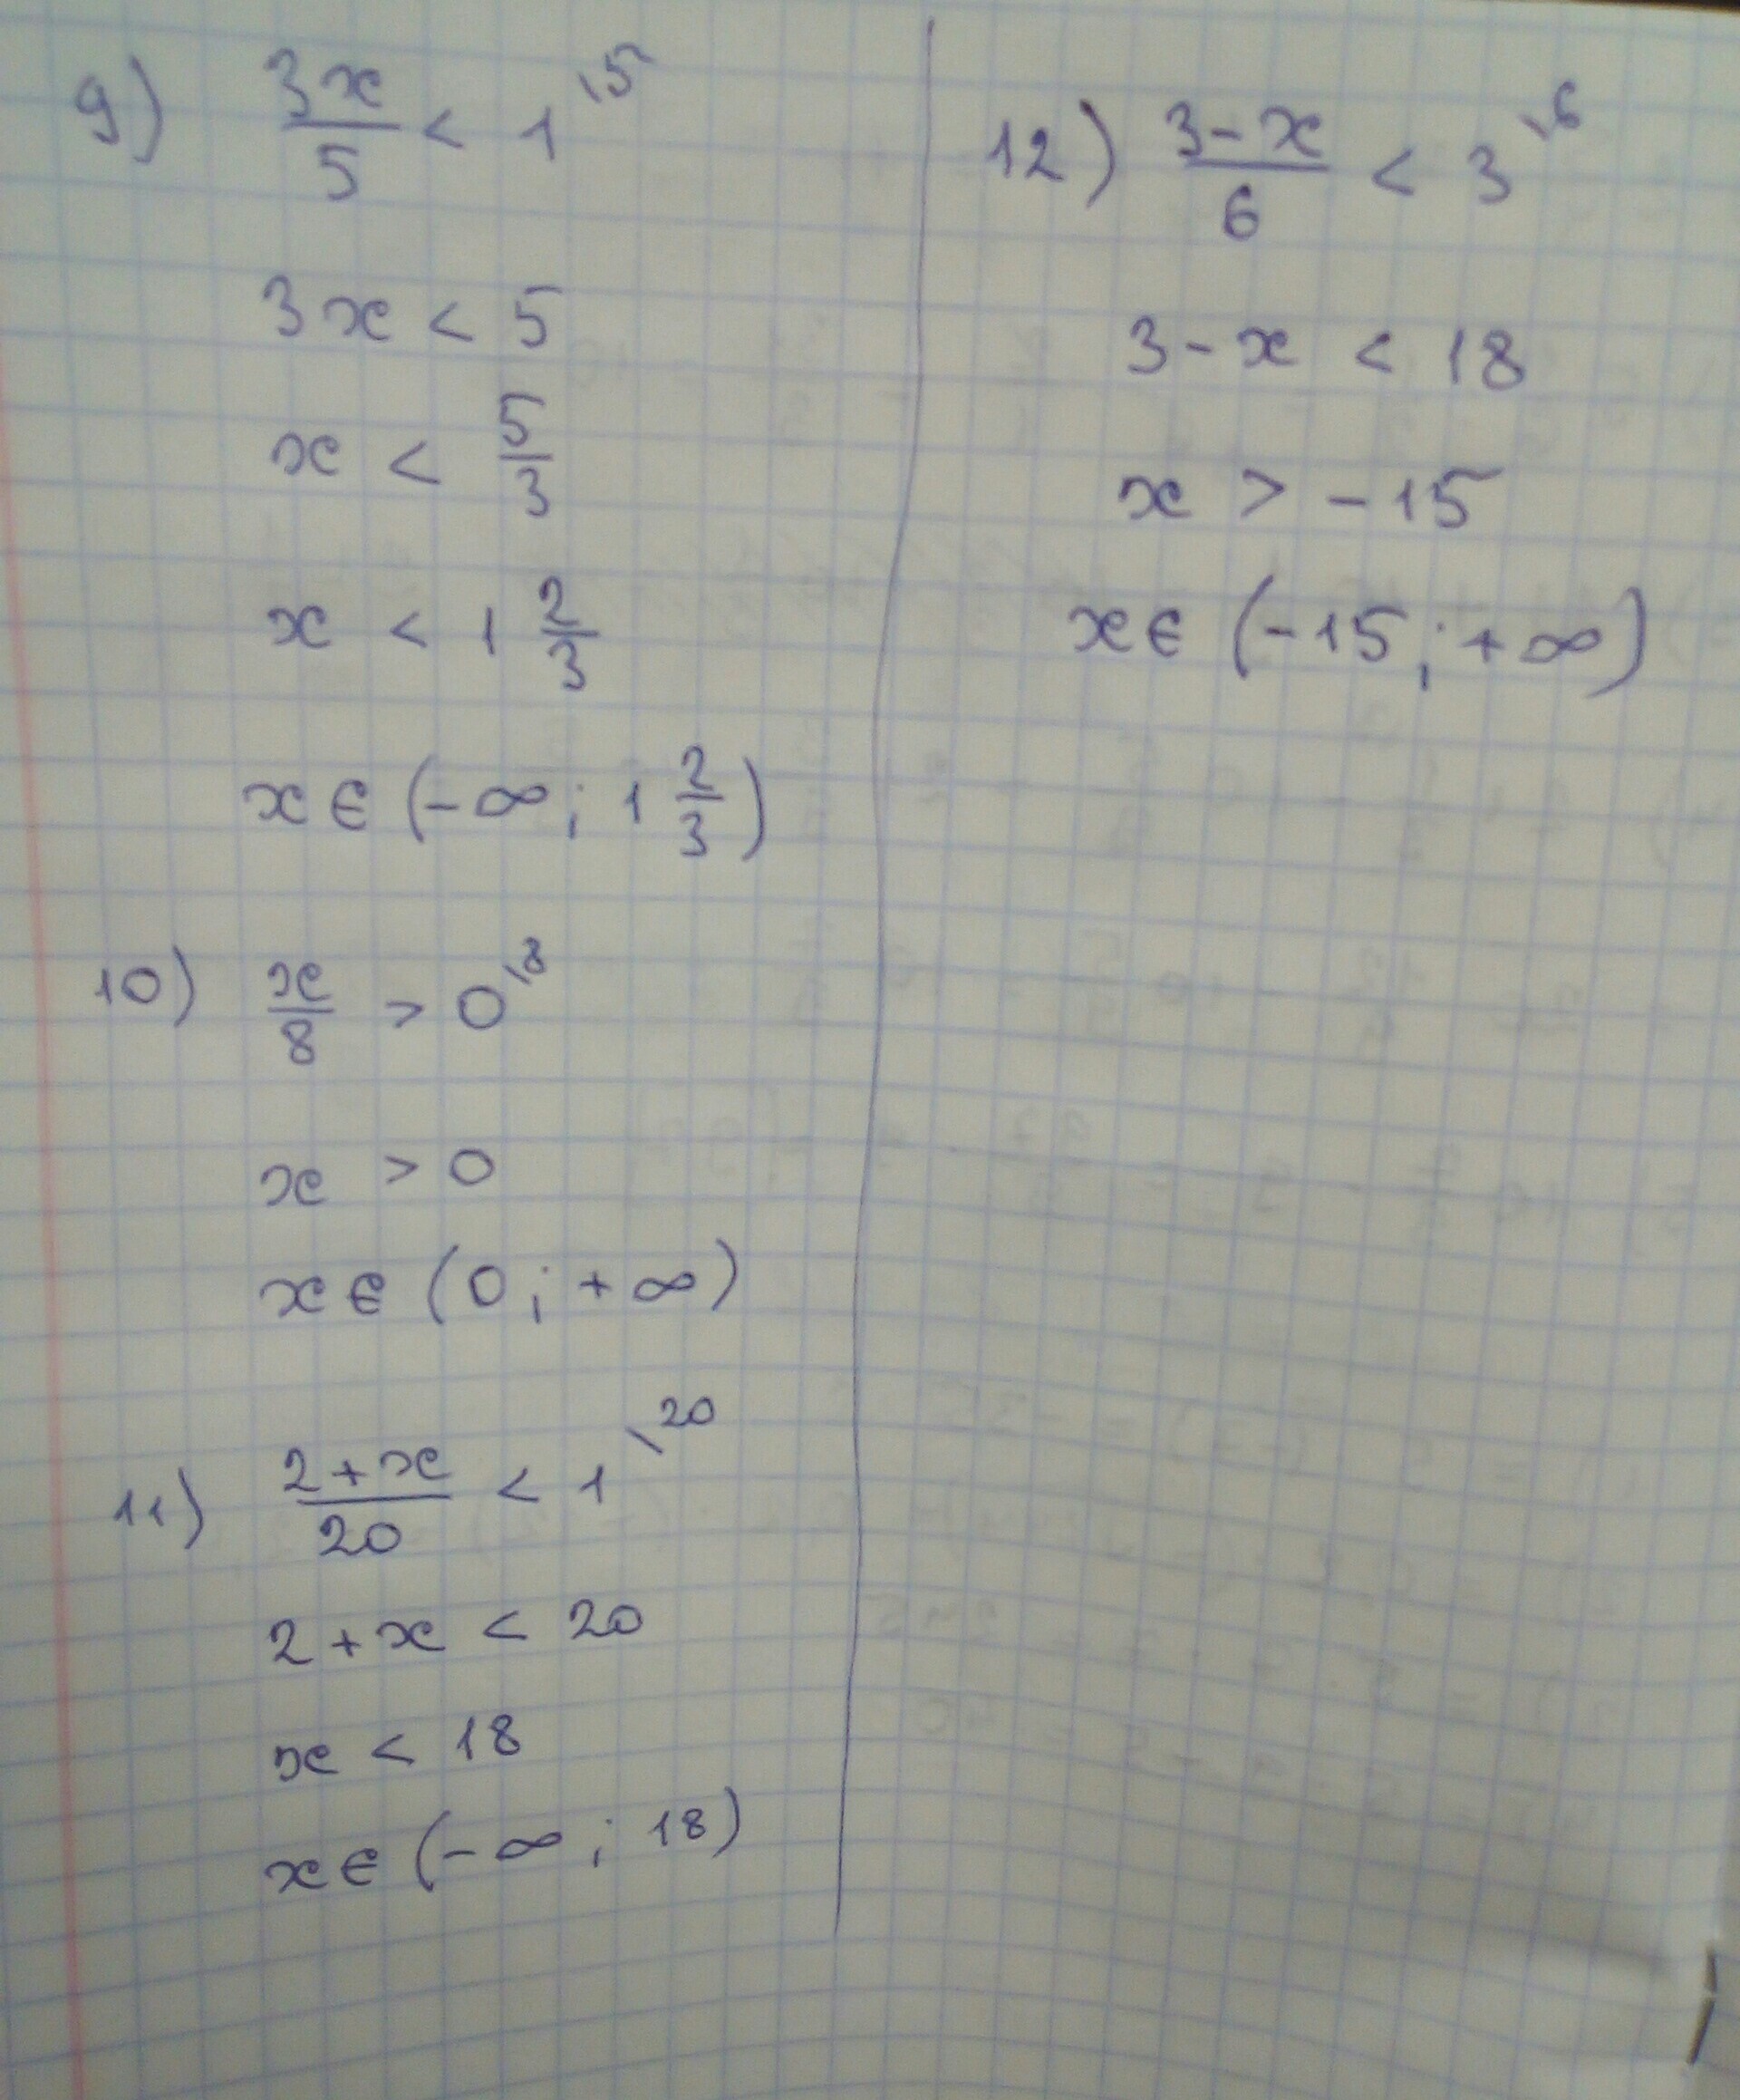 9) 3x/5 < 1 \5
3x < 5
x < 5/3
x < 1 2/3
x ∈ (-∞; 1 2/3)
10) x/8 > 0 \8
x > 0
x ∈ (0; +∞)
11) 2+x/20 < 1 \20
2+x < 20
x < 18
x ∈ (-∞; 18)
12) 3-x/6 < 3 \6
3-x < 18
x > -15
x ∈ (-15; +∞)